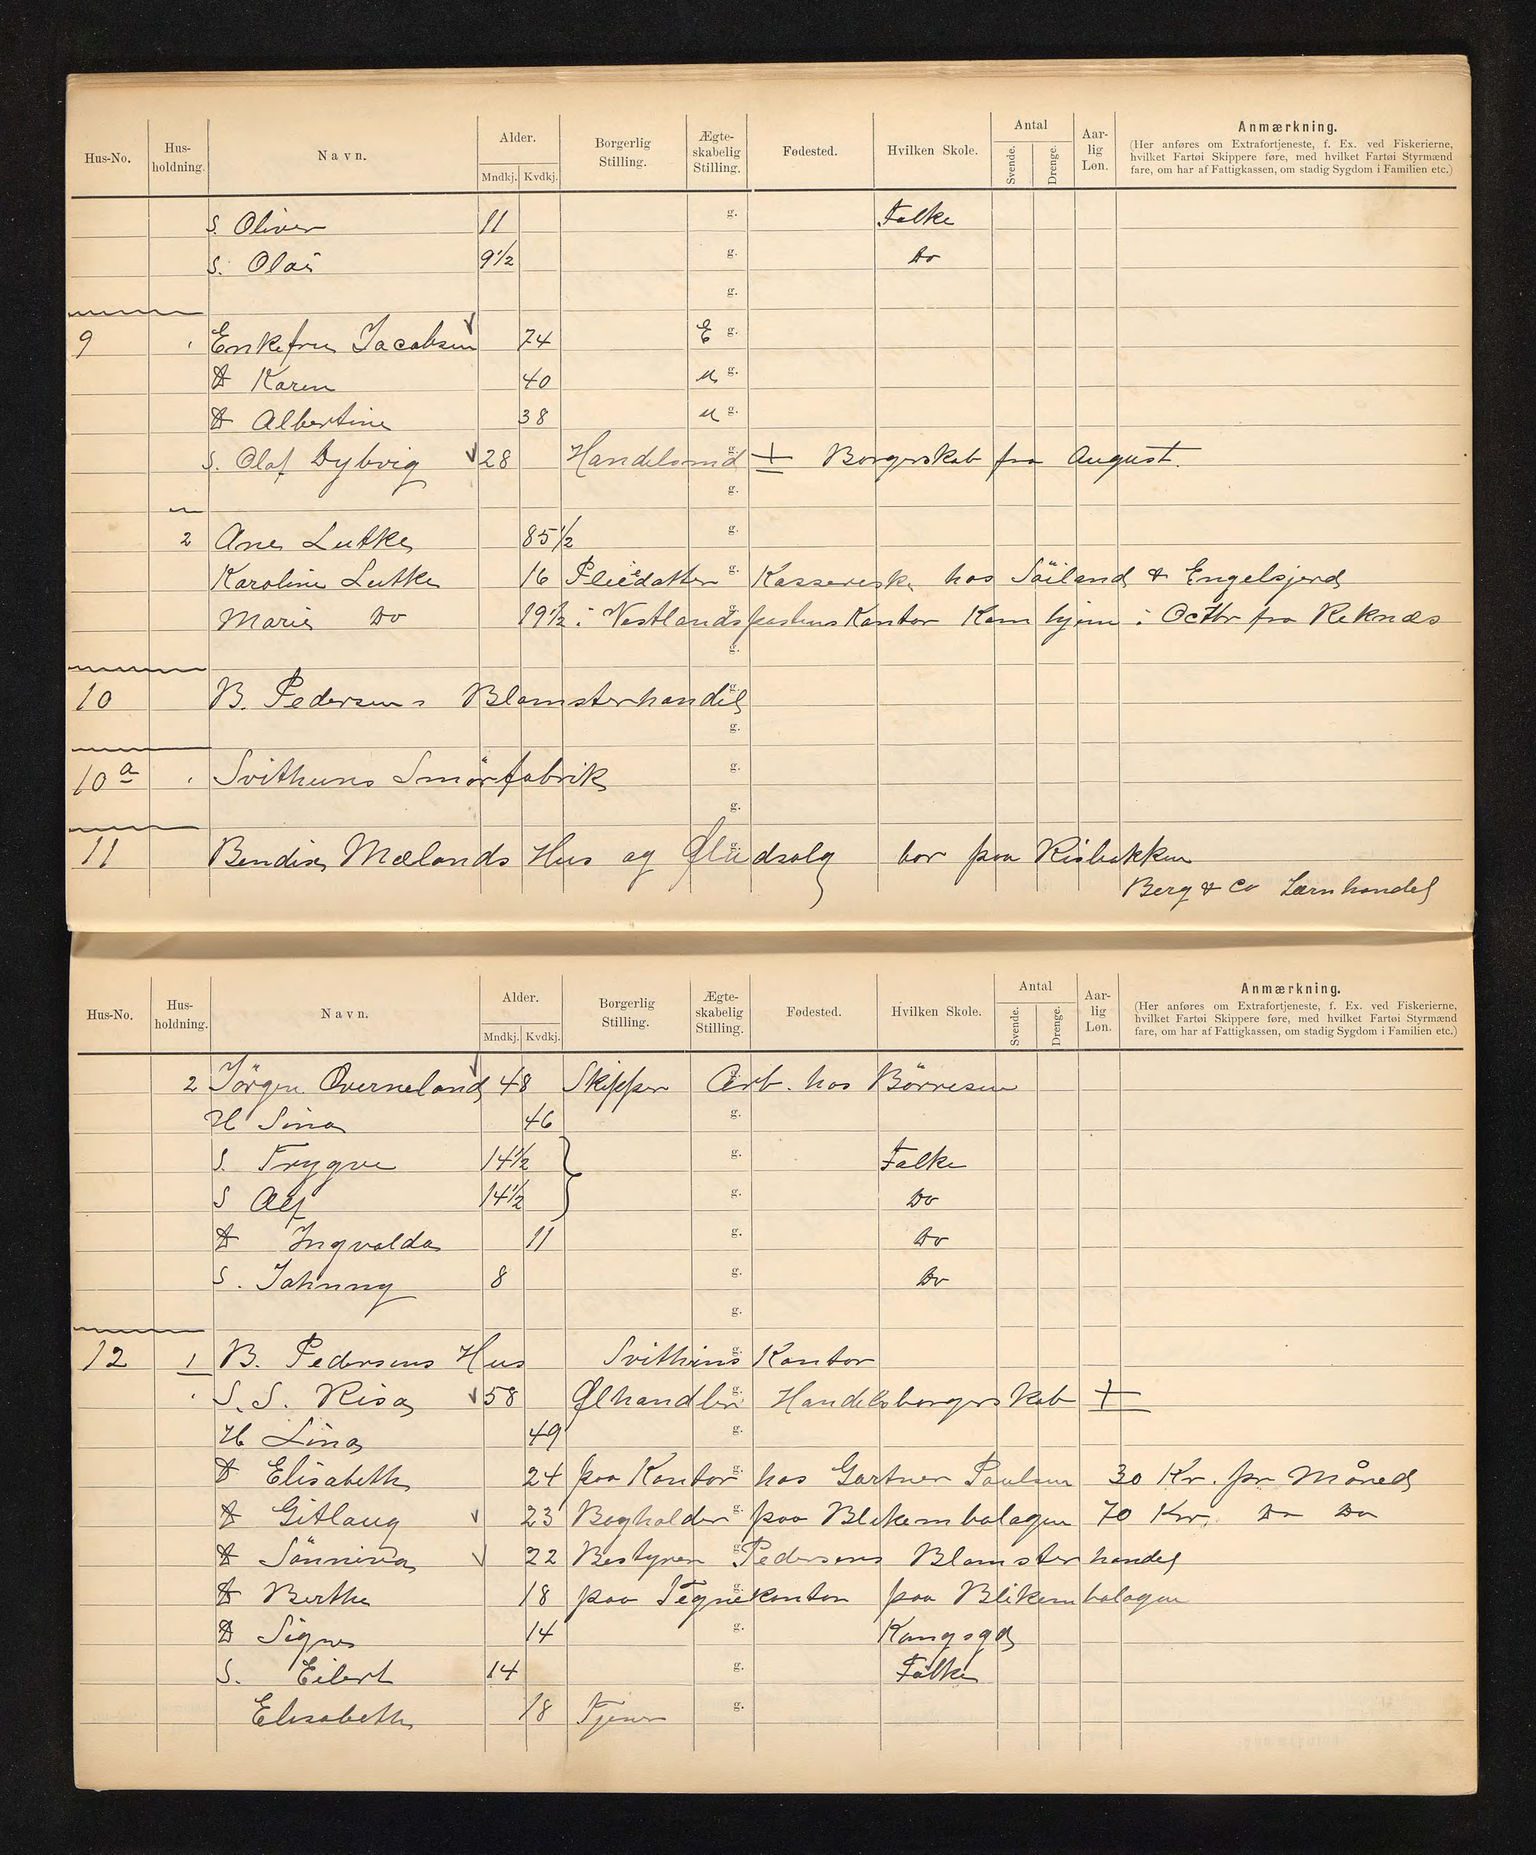 Hus-No. Hus-holdning. Navn. Alder. Mndkj. Kvdkj. Borgerlig Stilling. Ægte-skabelig Stilling. Fødested. Hvilken Skole. Antal Svende. Drenge. Aar-lig Løn. Anmærkning.
(Her anføres om Extrafortjeneste, f. Ex. ved Fiskerierne, hvilket Fartøi Skippere føre, med hvilket Fartøi Styrmænd fare, om har af Fattigkassen, om stadig Sygdom i Familien etc.)
S. Oliver 11 g. Folke
S. Olai 9 1/2 g. Do
g.
9 Enkefru Jacobsen 74 E g.
D Karen 40 u g.
D Albertine 38 u g.
S. Olaf Dybvig 28 Handelsmd g. + Borgerskab fra August.
g.
2 Ane Lutke 85 1/2 g.
Karoline Lutke 16 Pleiedatter g. Kassererske hos Söiland & Engelsjerd
Marie Do 19 1/2 i Vestlands posthus Kontor Kom hjem i Octbr fra Reknæs
g.
10 B. Pedersens Blomsterhandel g.
g.
10 a Svithuns Smörfabrik g.
g.
11 Bendix Mælands Hus og Øludsalg bor paa Risbakken
Berg & Co Jærnhandel
Hus-No. Hus-holdning. Navn. Alder. Mndkj. Kvdkj. Borgerlig Stilling. Ægte-skabelig Stilling. Fødested. Hvilken Skole. Antal Svende. Drenge. Aar-lig Løn. Anmærkning.
(Her anføres om Extrafortjeneste, f. Ex. ved Fiskerierne, hvilket Fartøi Skippere føre, med hvilket Fartøi Styrmænd fare, om har af Fattigkassen, om stadig Sygdom i Familien etc.)
2 Jörgen Overneland 48 Skipper Arb. hos Börresen
H Sina 46 g.
S. Trygve 14 1/2 g. Folke
S Alf 14 1/2 g. Do
D Ingvalda 11 g. Do
S. Johnny 8 g. Do
g.
12 1 B. Pedersens Hus Svithuns Kontor g.
S. S. Risa 58 Ølhandler g. Handelsborgerskab +
H Lina 49 g.
D Elisabeth 24 paa Kontor g. hos Gartner Poulsen 30 Kr. pr Måned
D Gitlaug 23 Bogholder g. paa Blikemballagen 70 Kr. Do Do
D Sönneva 22 Bestyrer g. Pedersens Blomsterhandel
D Berthe 18 paa Tegnekontor g. paa Blikemballagen
D Signe 14 g. Kongsgd
S. Eilert 14 g. Folke
Elisabeth 18 Tjener g.